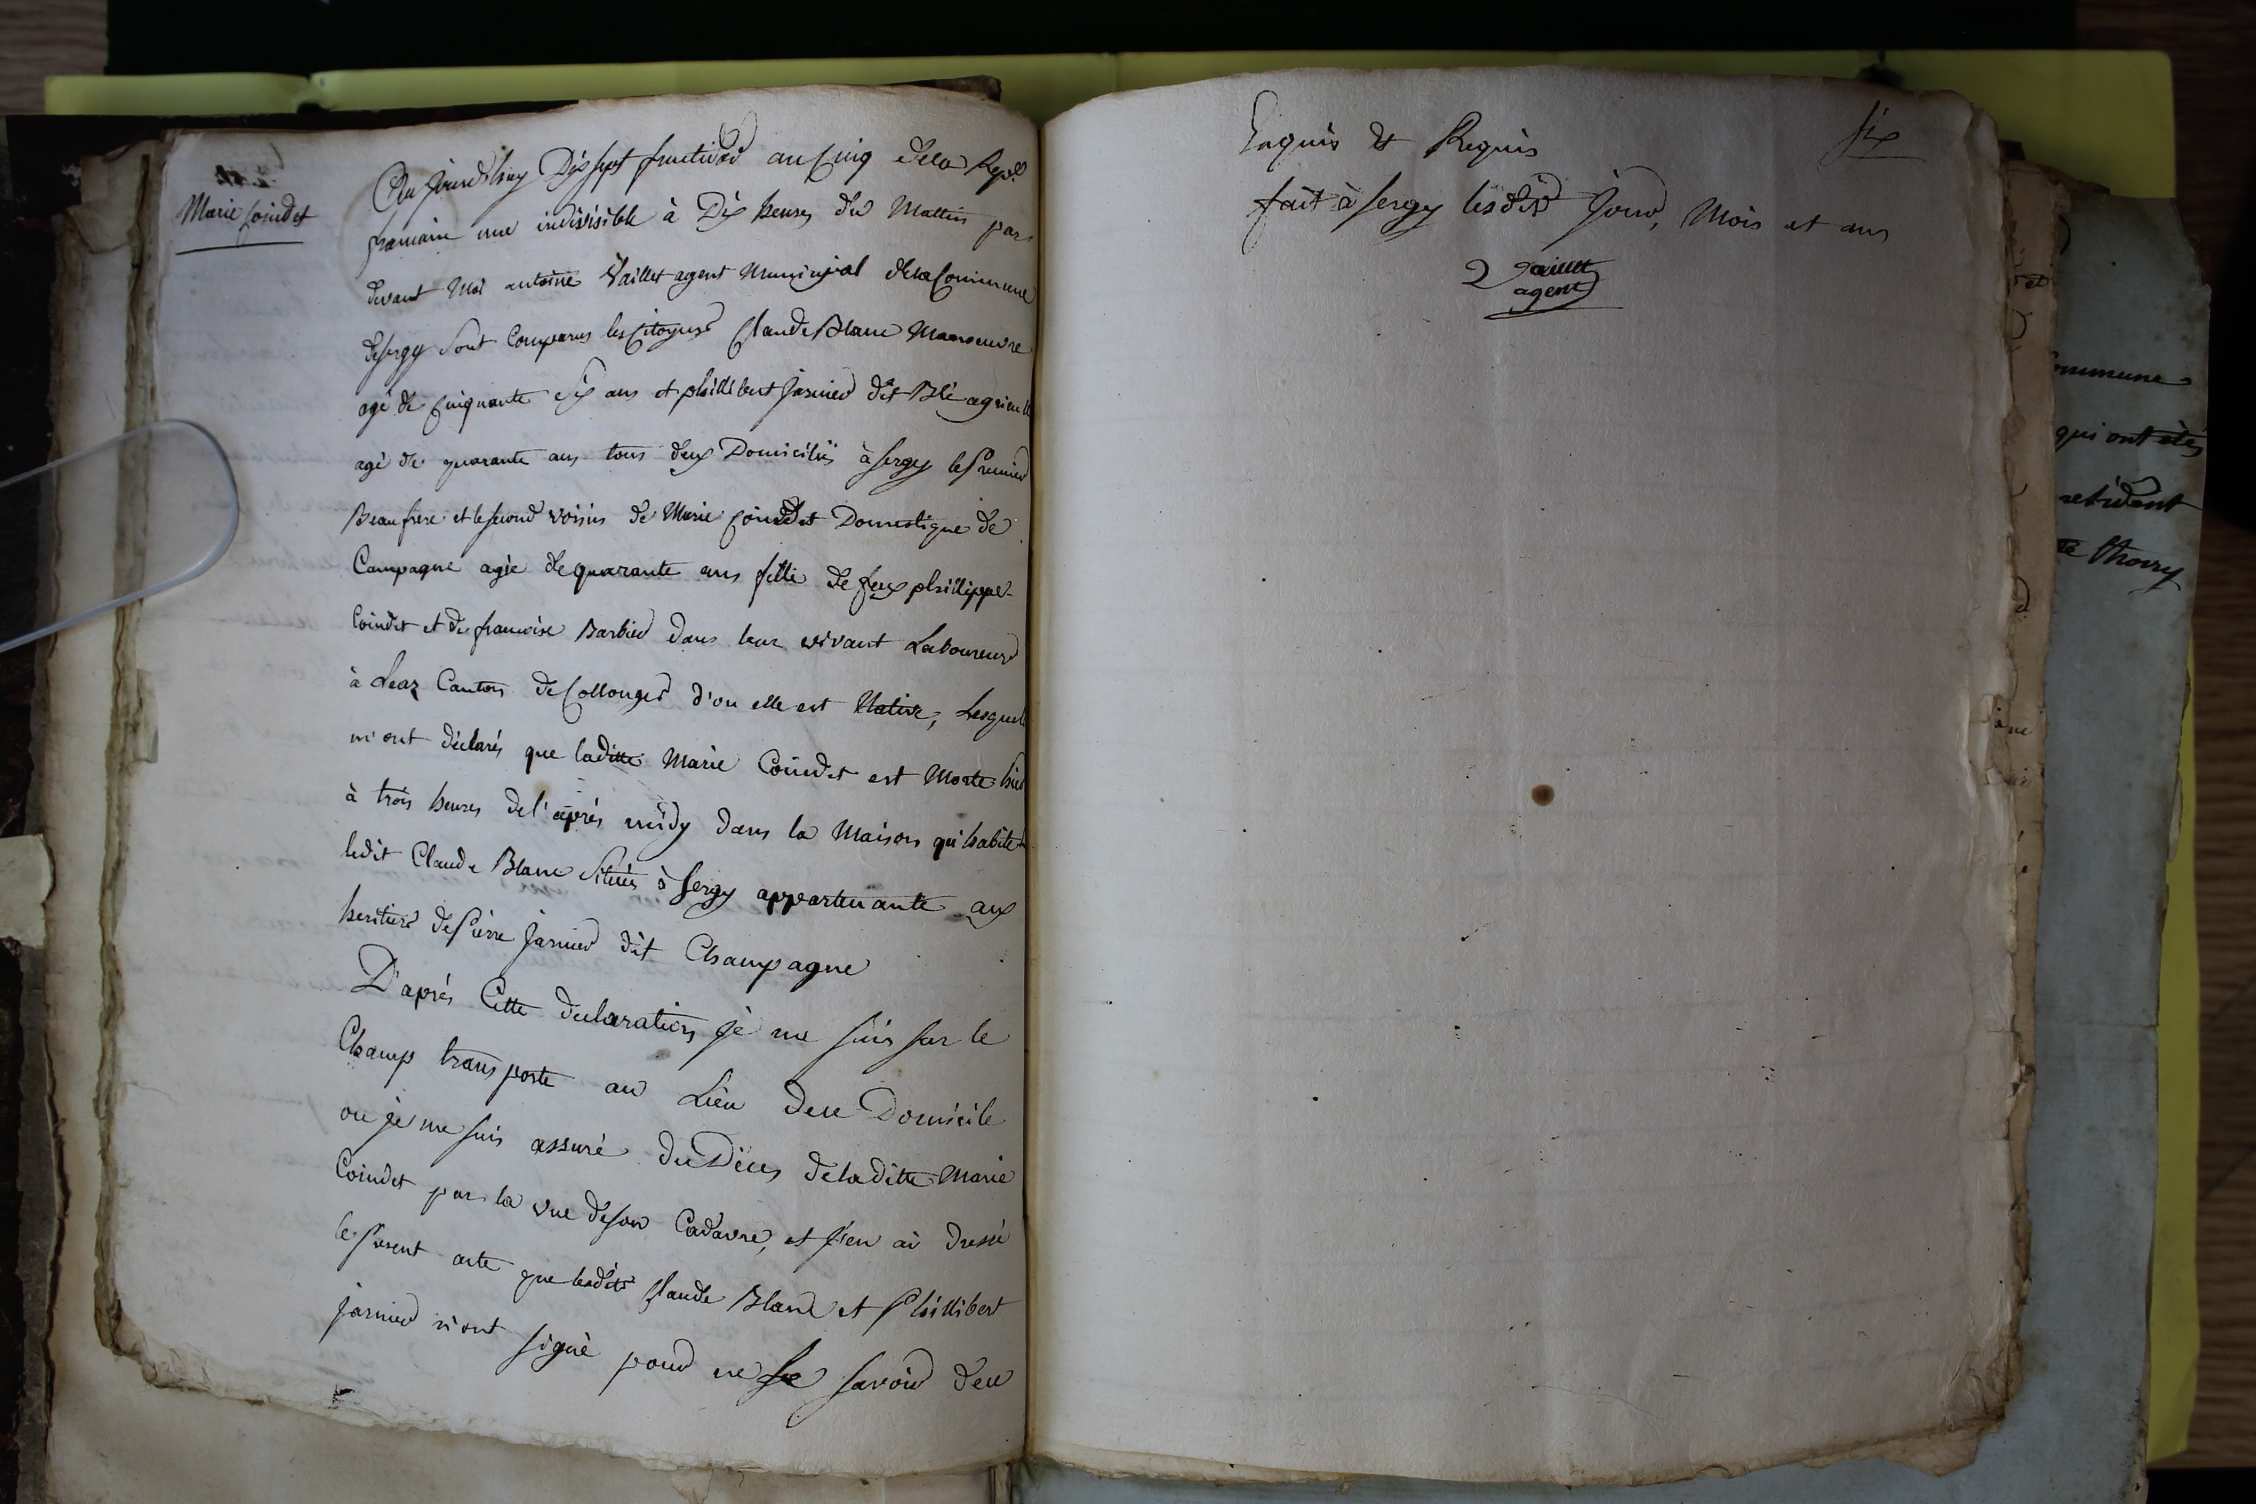 Marie Coindet
Au jourd'huy Dix sept fructidor an Cinq de la Repe
francaise une indivisible à Dix heures du Mattin par
devant Moi antoine Vaillet agent Municipal de la Commune
de sergy sont Comparus les Citoyens Claude Blanc Manoeuvre
agé de Cinquante Six ans et phillibert Jarnier dit Blé agricult
agé de quarante ans tous deux Domiciliés à sergy le premier
Beaufrere et le second voisin de Marie Coindet Domestique de
Campagne agée de quarante ans fille de feux phillippe
Coindet et de francoise Barbier dans leur vivant Laboureurs
à Leaz Canton de Collonges d'ou elle est Native, Lesquels
m'ont déclarés que laditte Marie Coindet est Morte hier
à trois heures de l'aprés midy dans la Maison qu'habite
ledit Claude Blanc Situés à sergy appartenante aux
heritiers de Pierre Jarnier dit Champagne
D'aprés Cette declaration je me suis sur le
Champ transporté au Lieu de ce Domicile
ou je me suis assuré du Déces de laditte Marie
Coindet par la vue de son Cadavre, et j'en ai dressé
le present acte que lesdits Claude Blanc et Phillibert
Jarnier n'ont signé pour ne le savoir de ce
six
Enquis et Requis
fait à sergy lesdit jour, Mois et ans
Vaillet
agent
ommune
qui ont été
residant
Thoiry